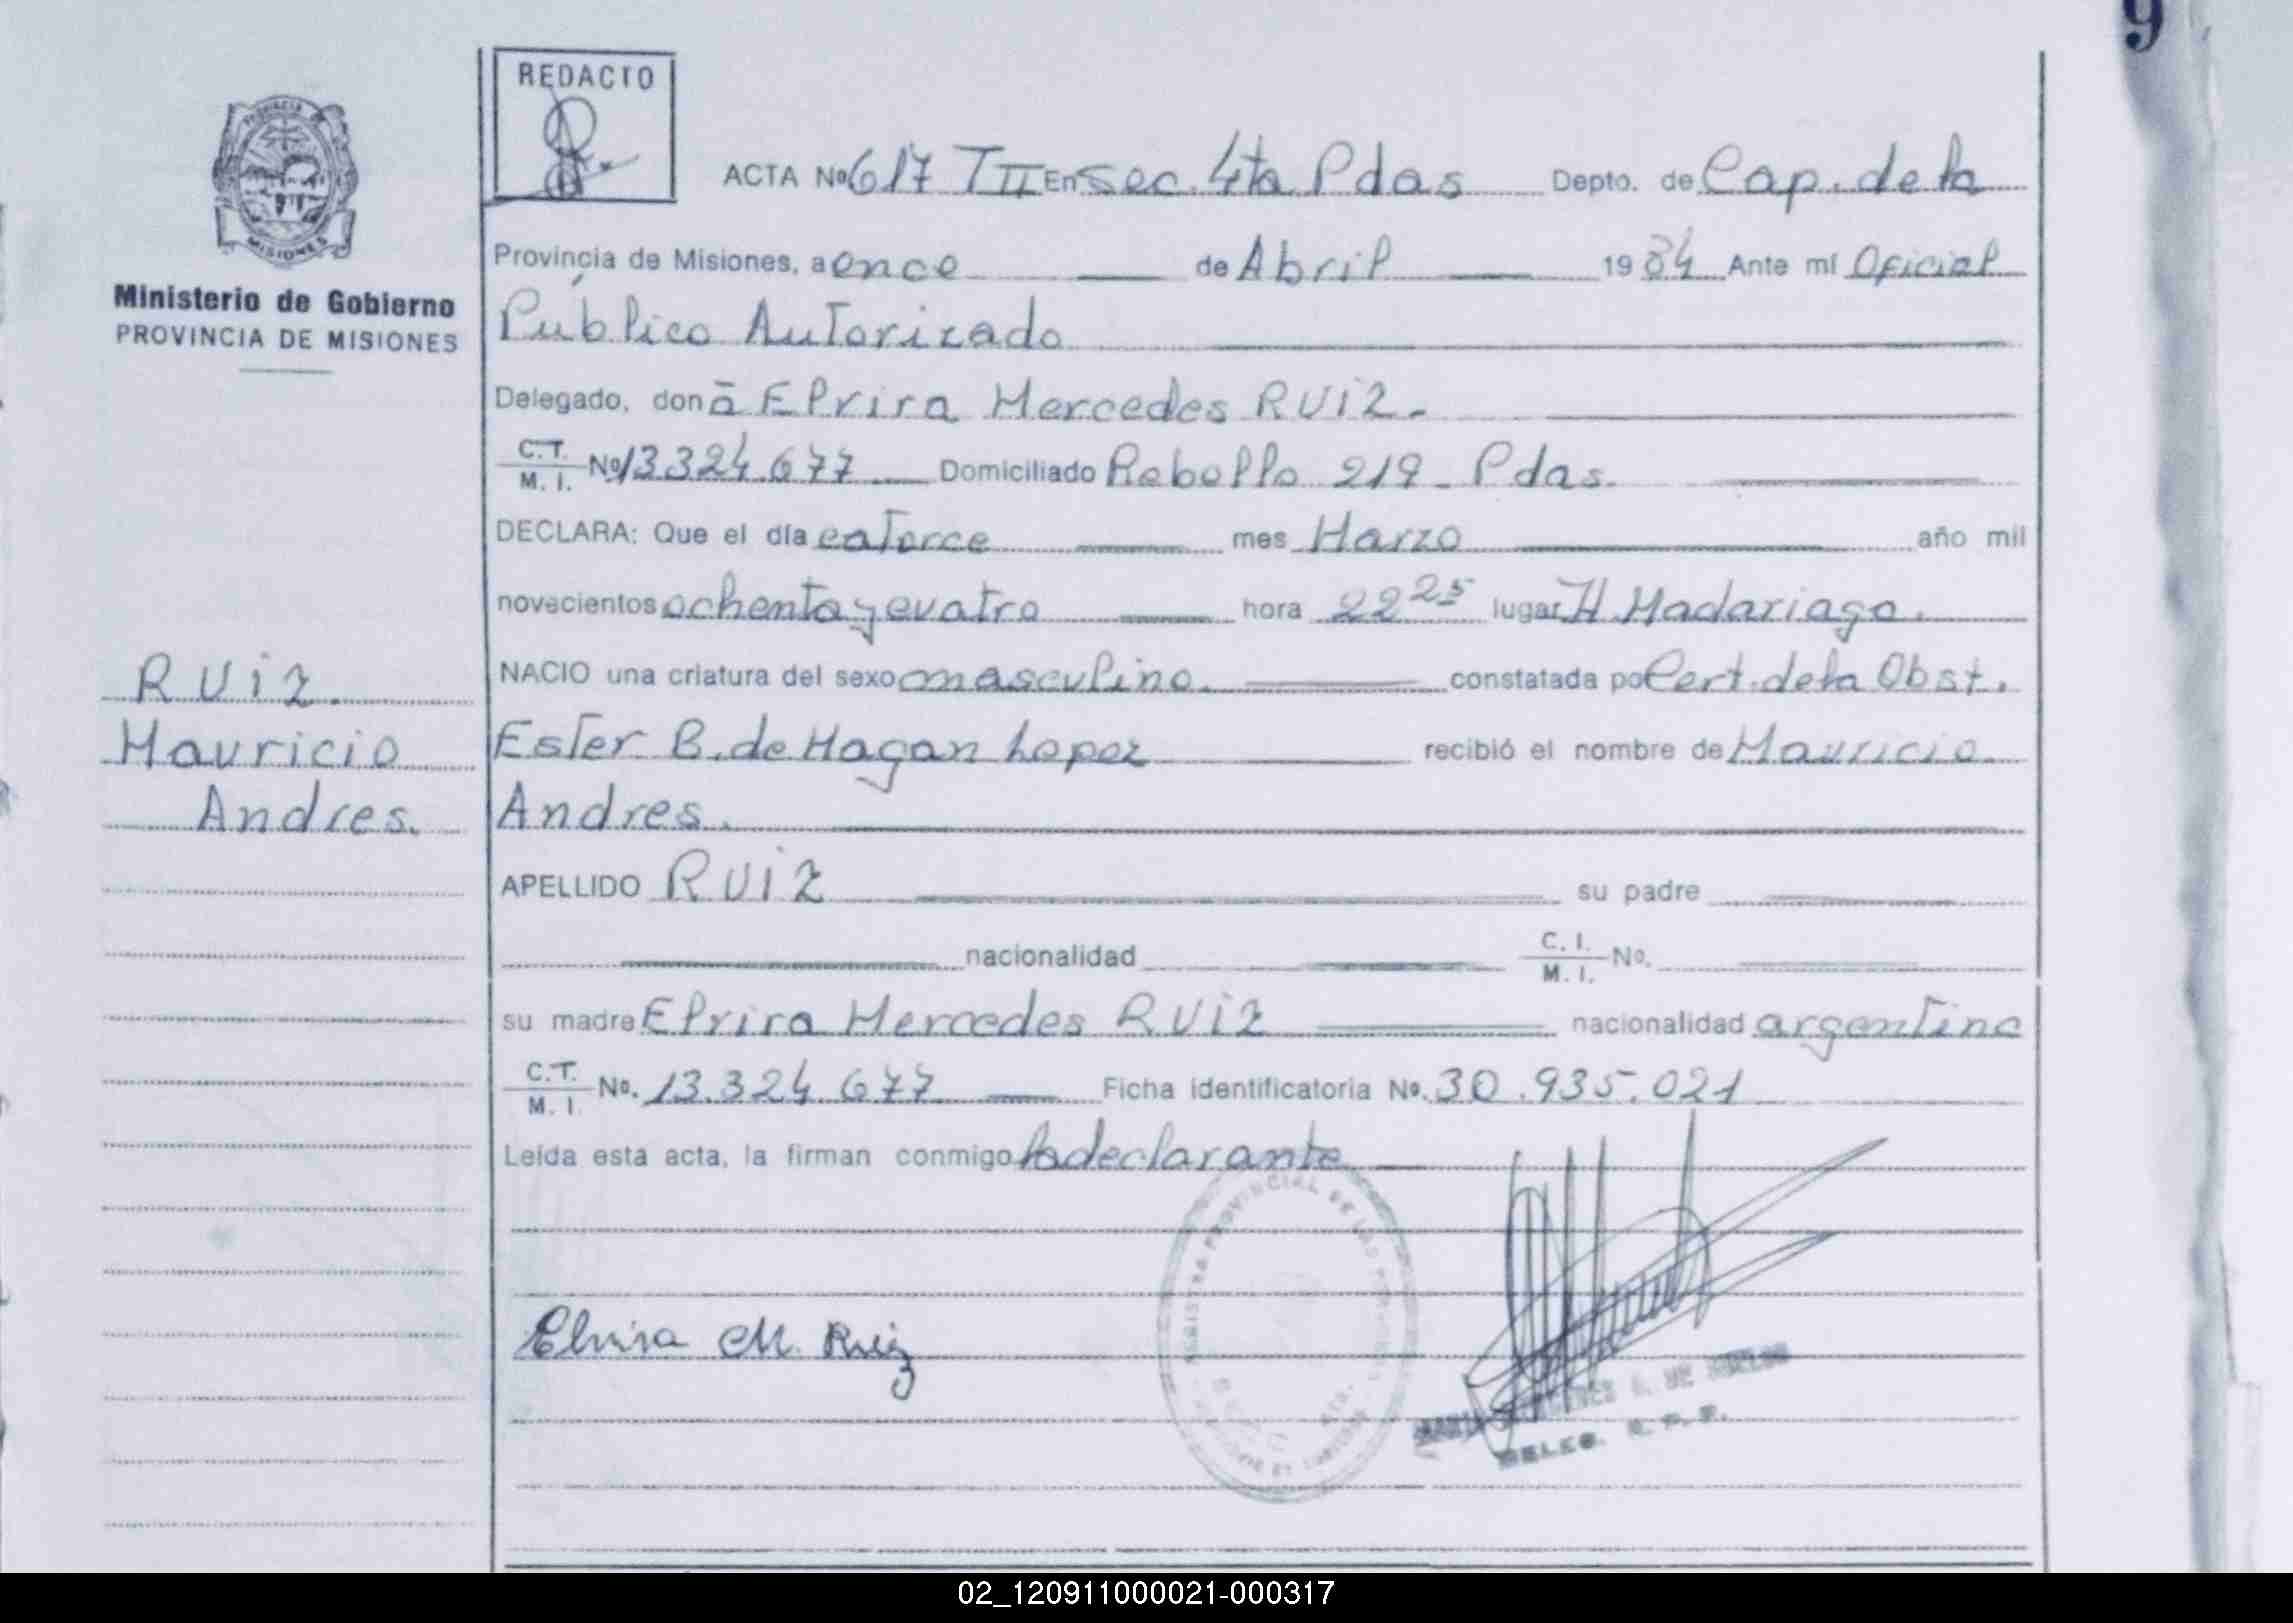 9
REDACTO
PROVINCIA DE
MISIONES
Ministerio de Gobierno
PROVINCIA DE MISIONES
ACTA Nº 617 TII En Sec. 4ta Pdas Depto. de Cap. de la
Provincia de Misiones, a once de Abril 1984 Ante mí Oficial
Público Autorizado
Delegado, don a Elvira Mercedes RUiZ.
C.T. / M. I. Nº 13.324.677 Domiciliado Rebollo 219 - Pdas.
DECLARA: Que el día catorce mes Marzo año mil
novecientos ochenta y cuatro hora 22 25 lugar H. Madariaga.
NACIO una criatura del sexo masculino. constatada po Cert. de la Obst.
Ester B. de Hagan Lopez recibió el nombre de Mauricio
Andres.
RUiZ
Mauricio
Andres.
APELLIDO RUiZ su padre
nacionalidad C. I. / M. I. No.
su madre Elvira Mercedes RUiZ nacionalidad argentina
C.T. / M. I. No. 13.324.677 Ficha identificatoria Nº. 30.935.021
Leída esta acta, la firman conmigo la declarante
Elvira M. Ruiz
02_120911000021-000317